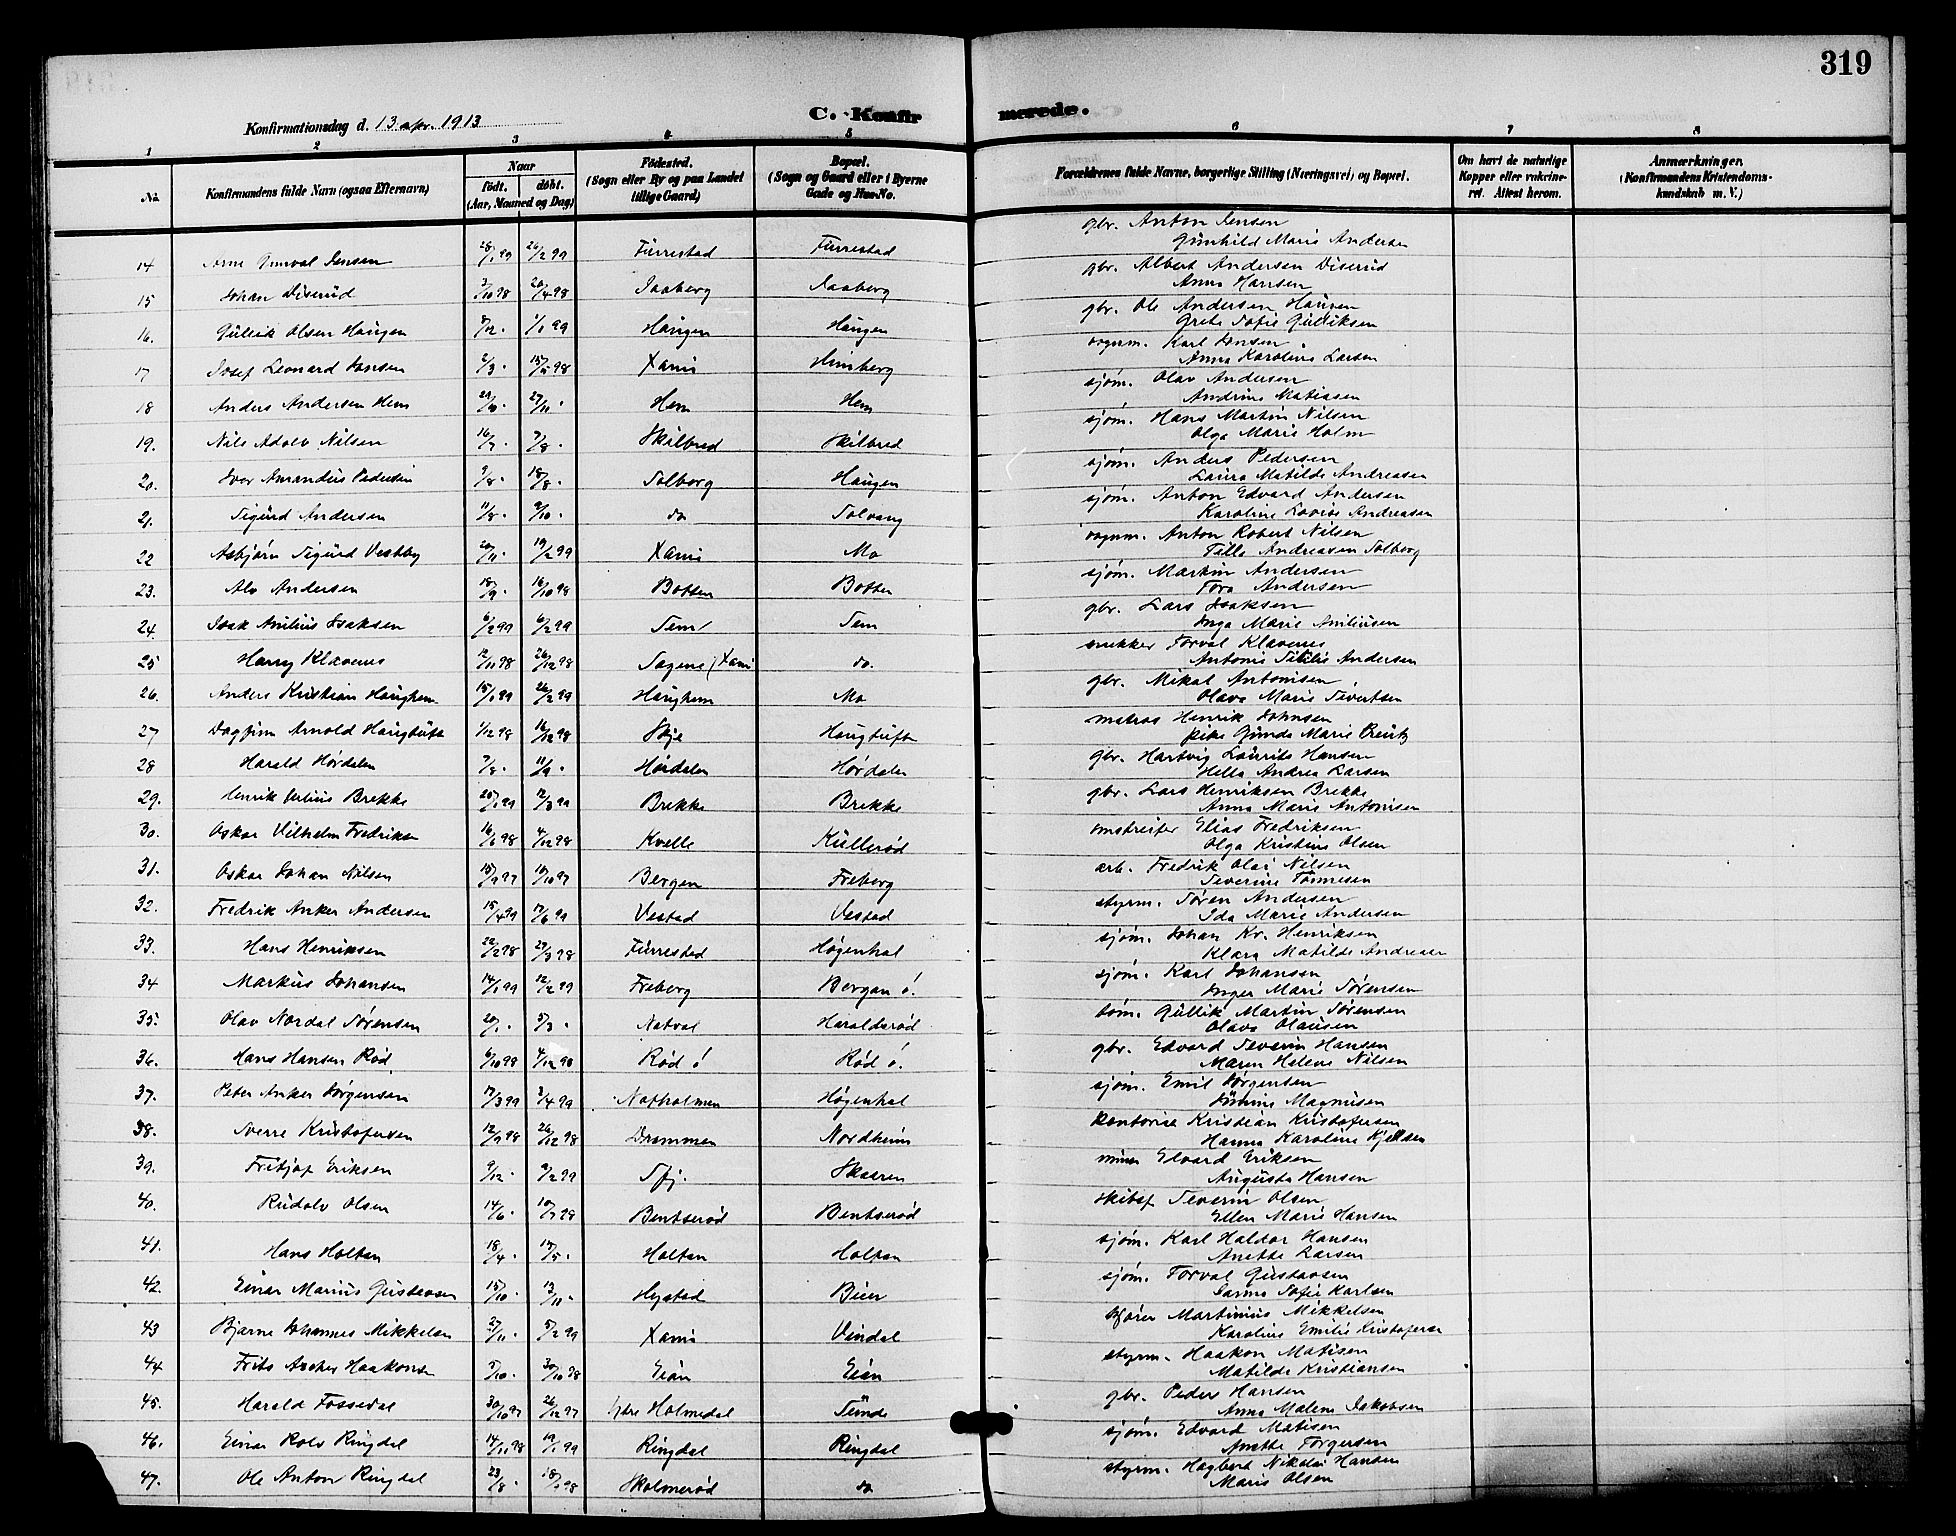 319
Konfirmationsdag d. 13 apr. 1913
C. Konfirmerede.
1 2 3 4 5 6 7 8
No. Konfirmandens fulde Navn (ogsaa Efternavn) Naar født. døbt. (Aar, Maaned og Dag) Fødested. (Sogn eller By og paa Landet tillige Gaard) Bopæl. (Sogn og Gaard eller i Byerne Gade og Hus-No. Forældrenes fulde Navne, borgerlige Stilling (Næringsvei) og Bopæl. Om havt de naturlige Kopper eller vakcineret. Attest herom. Anmærkninger. (Konfirmandens Kristendomskundskab m. V.)
14 Arne Gunval Jensen 28/1 99 26/2 99 Furrestad Furrestad gbr. Anton Jensen
Gunhild Marie Andersen
15 Johan Diserud /10 98 /4 98 Jaaberg Jaaberg gbr. Albert Andersen Diserud
Anna Hansen
16. Gullik Olsen Haugen /12 . 1/1 99 Haugen Haugen gbr. Ole Andersen Haugen
Grete Sofie Gulliksen
17 Josef Leonard Jansen 2/3 . 15/5 98 Xania Himberg vognm. Karl Jensen
Anna Karoline Larsen
18 Anders Andersen Hem 27/11 . Hem Hem sjøm. Olav Andersen
Andrine Matiasen
19. Nils Adolv Nilsen 16/7 . 7/8 . Skilbred Skilbred sjøm. Hans Martin Nilsen
Olga Marie Holm
20. Ivar Amandus Pedersen 9/8 . 18/8 . Solberg Haugen sjøm. Anders Pedersen
Laura Matilde Andreasen
21. Sigurd Andersen 11/8 . 9/10 . do Solvang sjøm. Anton Edvard Andersen
Karoline Lovise Andreasen
22 Asbjørn Sigurd Vestby 20/11 . 19/2 99 Xania Mo vognm. Anton Robert Nilsen
Tilla Andreasen Solberg
23. Alv Andersen 18/9 . 16/10 98 Botten Botten sjøm. Martin Andersen
Tora Andersen
24. Isak Anilius Isaksen 6/2 99 6/2 99 Sem Sem gbr. Lars Isaksen
Inga Marie Aniliusen
25 Harry Klavenes 12/11 98 26/12 98 Sagene, Xania do. snekker Torval Klavenes
Antonie Andersen
26. Anders Kristian Haughem 15/1 99 26/2 99 Haughem Mo gbr. Mikal Antonisen
Olava Marie Sivertsen
27 Dagfinn Arnold Haugtuft 1/12 98 16/12 98 Skje Haugtuft matros Henrik Johnsen
pike Gunda Marie
28 Harald Hørdalen 7/8 . 11/9 . Hørdalen Hørdalen gbr. Hartvig Laurits Hansen
Hella Andrea Larsen
29. Henrik Julius Brekke 20/1 99 12/3 99 Brekke Brekke gbr. Lars Henriksen Brekke
Anna Marie Antonisen
30. Oskar Vilhelm Fredriksen 16/6 98 4/12 98 Kvelle Kullerød omstreifer Elias Fredriksen
Olga Kristine Olsen
31. Oskar Johan Nilsen 15/9 97 10/10 97 Bergen Freberg arb. Fredrik Olai Nilsen
Severine Tønnesen
32. Fredrik Anker Andersen 15/4 99 17/6 99 Vestad Vestad styrm. Søren Andersen
Ida Marie Andersen
33. Hans Henriksen 22/2 98 27/3 98 Furrestad Høgenhal sjøm. Johan Kr. Henriksen
Klara Matilde Andreasen
34 Markus Johansen 14/1 99 12/2 99 Freberg Bergan ö. sjøm. Karl Johansen
Inger Marie Sørensen
35. Olav Nordal Sørensen 20/1 . 5/3 . Natval Haraldsrød tøm. Gullik Martin Sørensen
Olava Olausen
36. Hans Hansen Rød 6/10 98 4/12 98 Rød ö Rød ö. gbr. Edvard Severin Hansen
Maren Helene Nilsen
37. Peter Anker Jørgensen 17/3 99 2/4 99 Natholmen Høgenhal sjøm. Emil Jørgensen
Magnusen
38. Sverre Kristofersen 12/9 98 26/12 98 Drammen Nordheim kontorist Kristian Kristofersen
Hanna Karoline
39. Fritjof Eriksen 9/12 . 9/2 99 Sfj. Skaaren miner Elvard Eriksen
Augusta Hansen
40. Rudolv Olsen 14/6 . 10/7 98 Bentserød Bentserød skibsf Severin Olsen
Ellen Marie Hansen
41. Hans Holtan 18/4 . 19/5 . Holtan Holtan sjøm. Karl Haldor Hansen
Anette Larsen
42. Einar Marius Gustavsen 15/10 . 13/11 . Hystad Bien sjøm. Torval Gustavsen
Sofie Karlsen
43 Bjarne Johannes Mikkelsen 27/11 . 5/2 99 Xania Vindal kjører Martinius Mikkelsen
Karoline Emilie Kristofersen
44 Frits Ascher Haakonsen 7/10 . 30/10 98 Eian Eian styrm. Haakon Matisen
Matilde Kristiansen
45. Harald Fossedal 30/10 97 26/12 97 Holmedal Tunde gbr. Peder Hansen
Anna Malene Jakobsen
46. Einar Rolv Ringdal 14/11 98 19/1 99 Ringdal Ringdal sjøm. Edvard Matisen
Anette Torgersen
47. Ole Anton Ringdal 23/8 . 18/9 98 Skolmerød do styrm. Hagbert Nikolai Hansen
Marie Olsen